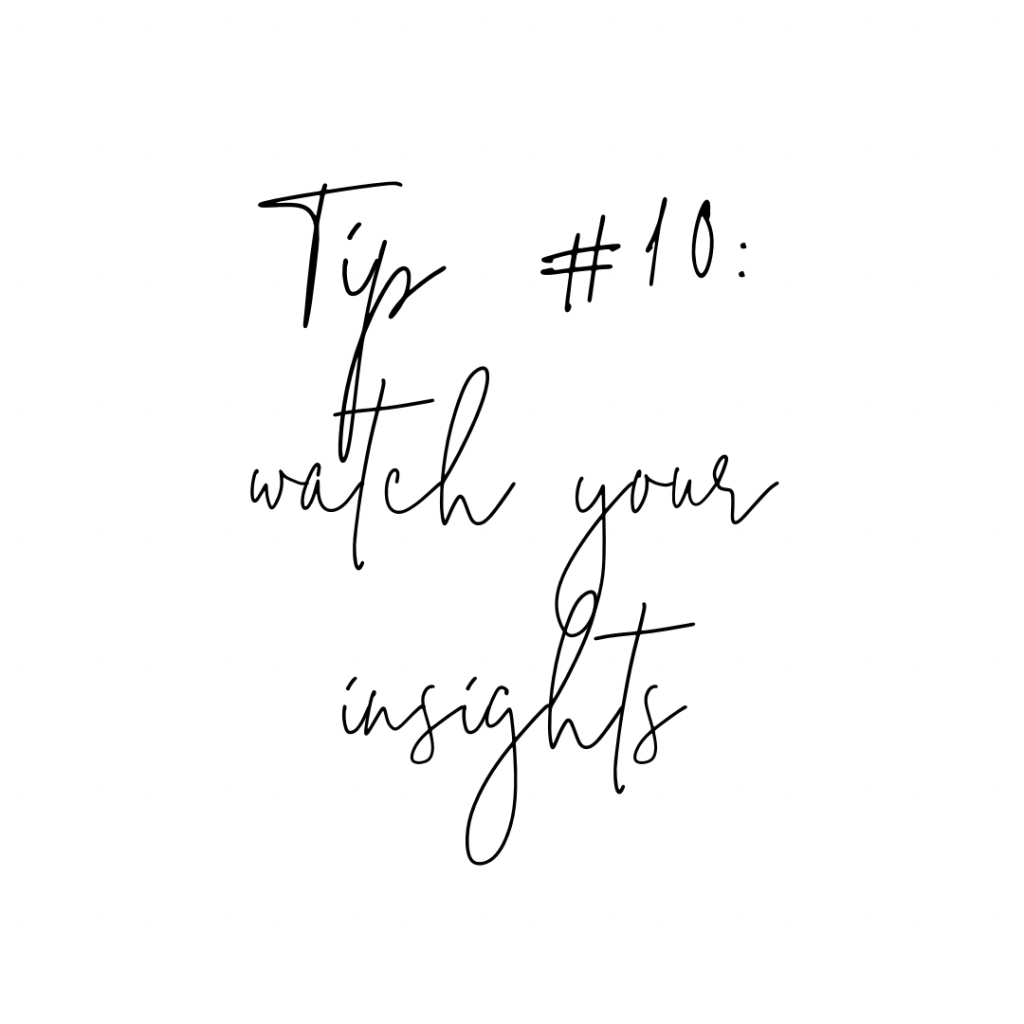 Tip #10:
watch your
insights